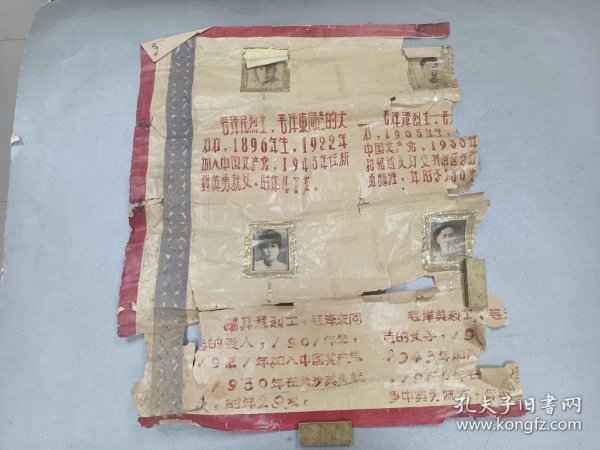 毛泽民烈士,毛泽东同志的大
弟弟,1896年生,1922年
加入中国共产党,1943年在新
疆英勇就义,时年47岁。
毛泽覃烈士,毛
弟,1905年生,
中国共产党,1930年
勇牺牲,年时
杨开慧烈士,毛泽东同
志的爱人,1901年生,
1921年加入中国共产党
1930年在长沙英勇就
义,时年29岁。
毛岸英烈士,毛
志的长子,19
1943年加入
争中英勇牺
孔夫子旧书网
www.kongfz.com